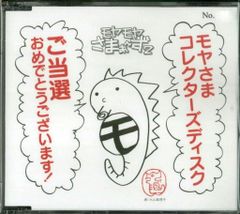 No.
モヤモヤ
さまぁ~ず2
モヤさま
コレクターズディスク
ご当選
おめでとうございます!
モ